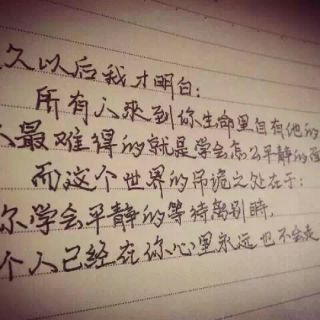 久以后我才明白：
所有人來到你生命里自有他的
最难得的就是学会怎么平静的
而这个世界的吊诡之处在于：
你学会平静的等待离别时，
个人已经在你心里永远也不会走